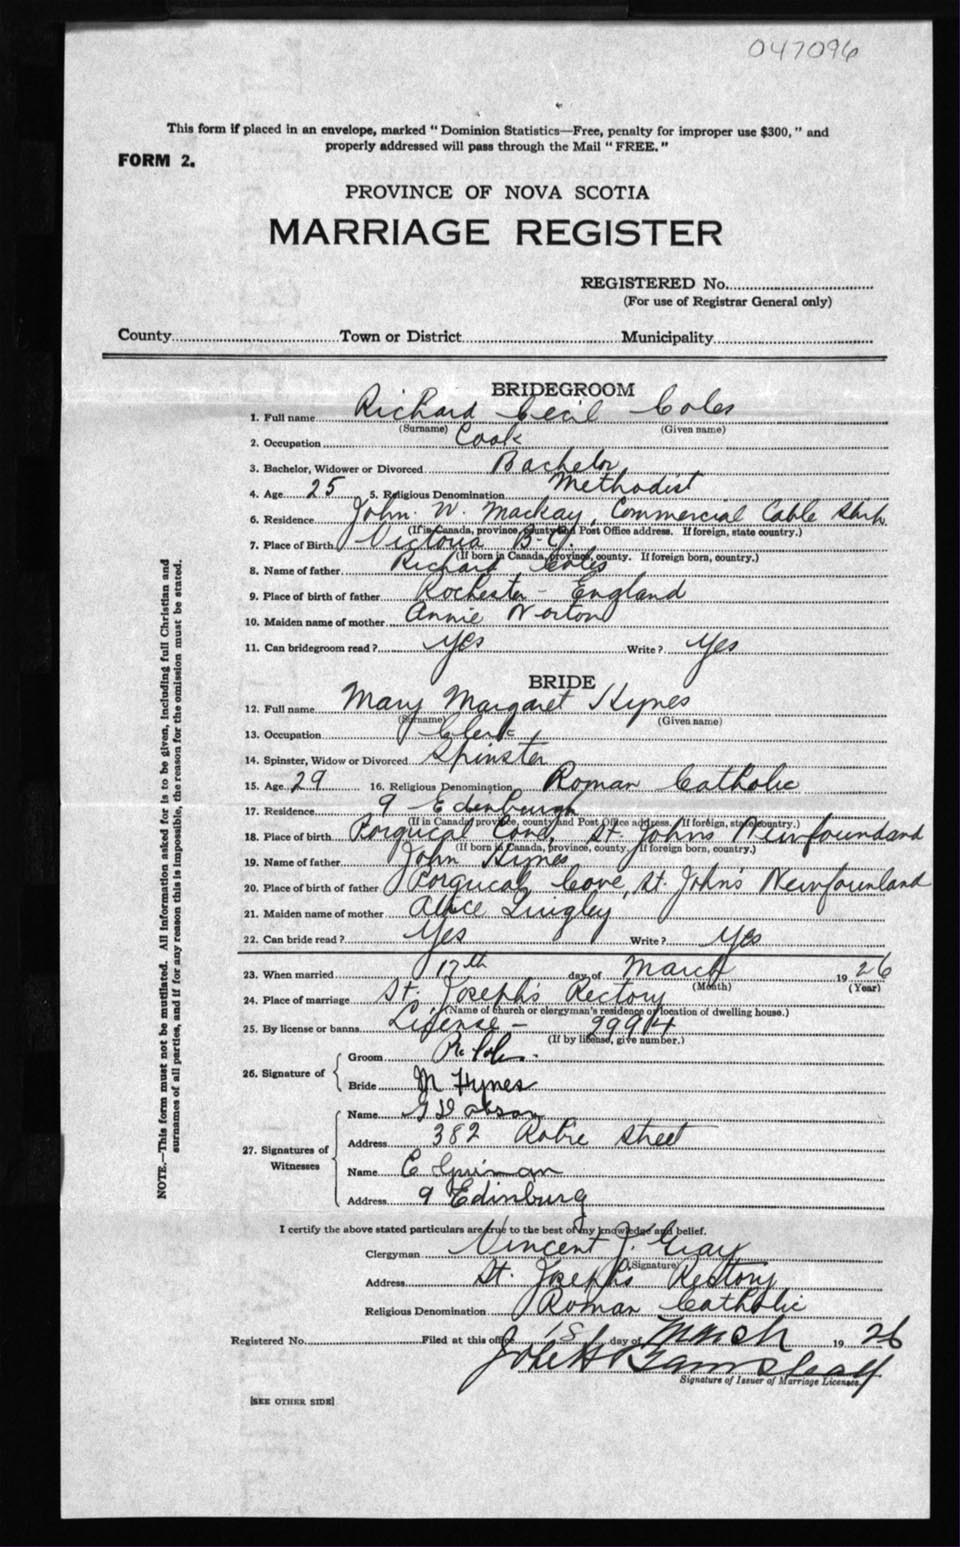 047096
This form if placed in an envelope, marked "Dominion Statistics—Free, penalty for improper use $300," and
properly addressed will pass through the Mail "FREE."
FORM 2.
PROVINCE OF NOVA SCOTIA
MARRIAGE REGISTER
REGISTERED No.
(For use of Registrar General only)
County Town or District Municipality
BRIDEGROOM
1. Full name Richard Cecil Coles
(Surname) (Given name)
2. Occupation Cook
3. Bachelor, Widower or Divorced Bachelor
4. Age 25 5. Religious Denomination Methodist
6. Residence John. W. Mackay, Commercial Cable Ship.
(If in Canada, province, county and Post Office address. If foreign, state country.)
7. Place of Birth Victoria B.C.
(If born in Canada, province, county. If foreign born, country.)
8. Name of father Richard Coles
9. Place of birth of father Rochester - England
10. Maiden name of mother Annie Norton
11. Can bridegroom read? Yes Write? Yes
BRIDE
12. Full name Mary Margaret Hynes
(Surname) (Given name)
13. Occupation Clerk
14. Spinster, Widow or Divorced Spinster
15. Age 29 16. Religious Denomination Roman Catholic
17. Residence 9 Edenburgh
(If in Canada, province, county and Post Office address. If foreign, state country.)
18. Place of birth Porgucal Cove, St. Johns Newfoundand
(If born in Canada, province, county. If foreign born, country.)
19. Name of father John Hynes
20. Place of birth of father Porgucal Cove, St. John's Newfounland
21. Maiden name of mother Alice Lingley
22. Can bride read? Yes Write? Yes
23. When married 17th day of March 1926
(Month) (Year)
24. Place of marriage St. Joseph's Rectory
(Name of church or clergyman's residence or location of dwelling house.)
25. By license or banns License - 29914
(If by license, give number.)
26. Signature of Groom
Bride M Hynes
27. Signatures of Witnesses Name
Address 382 Robie Street
Name C
Address 9 Edinburg
I certify the above stated particulars are true to the best of my knowledge and belief.
Clergyman Vincent J. Gray
(Signature)
Address St. Joseph's Rectory
Religious Denomination Roman Catholic
Registered No. Filed at this office 18 day of March 1926
Signature of Issuer of Marriage Licenses
[SEE OTHER SIDE]
NOTE.—This form must not be mutilated. All information asked for is to be given, including full Christian and
surnames of all parties, and if for any reason this is impossible, the reason for the omission must be stated.